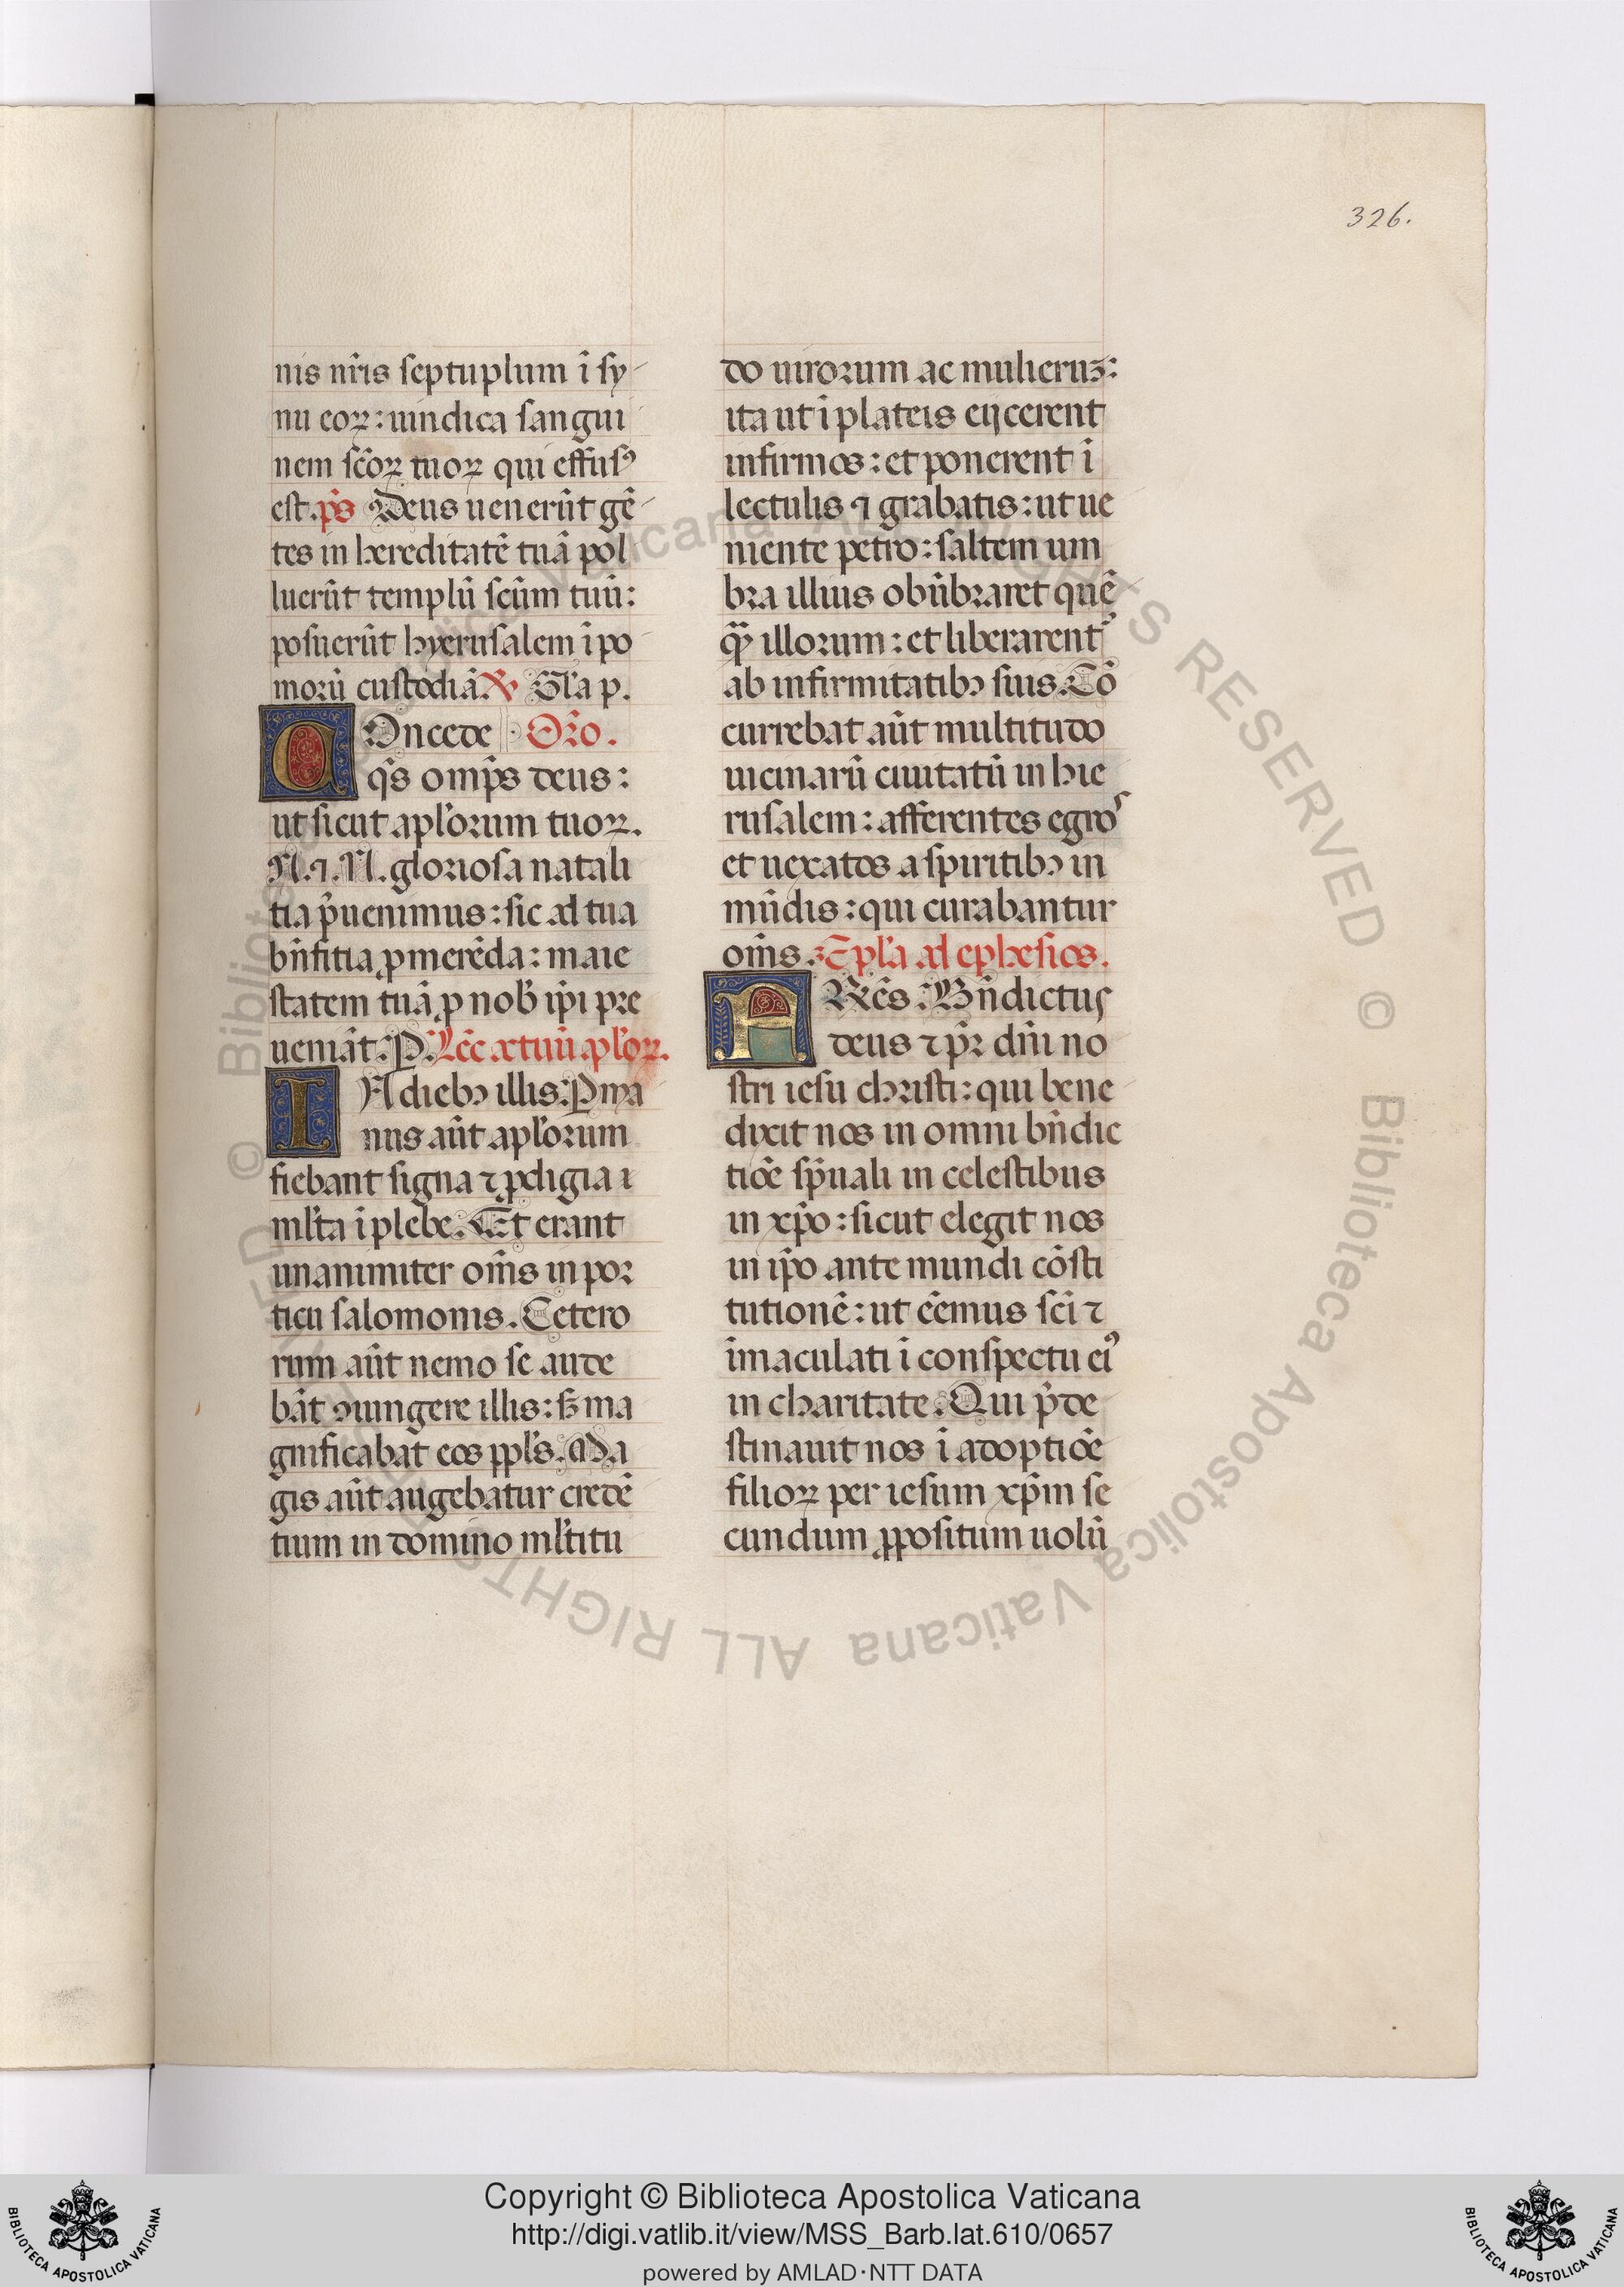 326.
nis nr̃is septuplum ĩ sy
nu eoꝝ: uindica sangui
nem sc̃oꝝ tuoꝝ qui effusꝰ
est. p̃s Deus uenerũt gẽ
tes in hereditatẽ tuã pol
luerũt templũ scũm tuũ:
posuerũt hyerusalem ĩ po
morũ custodiã. ℣ Gl̃a p.
COncede Or̃o.
qs̃ omp̃s deus:
ut sicut apl'orum tuoꝝ.
N. ⁊. N. gloriosa natali
tia p̃uenimus: sic ad tua
bñfitia ꝑmerẽda: maie
statem tuã ꝓ nob̃ ip̃i pre
ueniãt. P. Lc̃c actuũ apl'oꝝ.
IN diebꝫ illis: P ma
nus aũt apl'orum
fiebant signa ⁊ ꝓdigia i
ml'ta ĩ plebe. Et erant
unanimiter om̃s in por
ticu salomonis. Cetero
rum aũt nemo se aude
bãt ꝯiungere illis: sꝫ ma
gnificabat eos ppl's. Ma
gis aũt augebatur credẽ
tium in domino ml'titu
do uirorum ac mulieruꝫ:
ita ut ĩ plateis eijcerent
infirmos: et ponerent ĩ
lectulis ⁊ grabatis: ut ue
niente petro: saltem um
bra illius obũbraret quẽ
q̃ꝫ illorum: et liberarentᷣ
ab infirmitatibꝫ suis. Cõ
currebat aũt multitudo
uicinarũ ciuitatũ in hie
rusalem: afferentes egros
et uexatos a spiritibꝫ in
mũdis: qui curabantur
om̃s. Epl'a ad ephesios.
FRẽs: Bñdictus
deus ⁊ pr̃ dñi no
stri iesu christi: qui bene
dixit nos in omni bñdic
tiõe sp̃uali in celestibus
in xp̃o: sicut elegit nos
in ip̃o ante mundi cõsti
tutionẽ: ut eẽmus sc̃i ⁊
ĩmaculati ĩ conspectu eiꝰ
in charitate. Qui p̃de
stinauit nos ĩ adoptiõe
filioꝝ per iesum xp̃m se
cundum ꝓpositum uolũ
Copyright © Biblioteca Apostolica Vaticana
http://digi.vatlib.it/view/MSS_Barb.lat.610/0657
powered by AMLAD·NTT DATA
BIBLIOTECA APOSTOLICA VATICANA
BIBLIOTECA APOSTOLICA VATICANA
© Biblioteca Apostolica Vaticana ALL RIGHTS RESERVED © Biblioteca Apostolica Vaticana ALL RIGHTS RESERVED